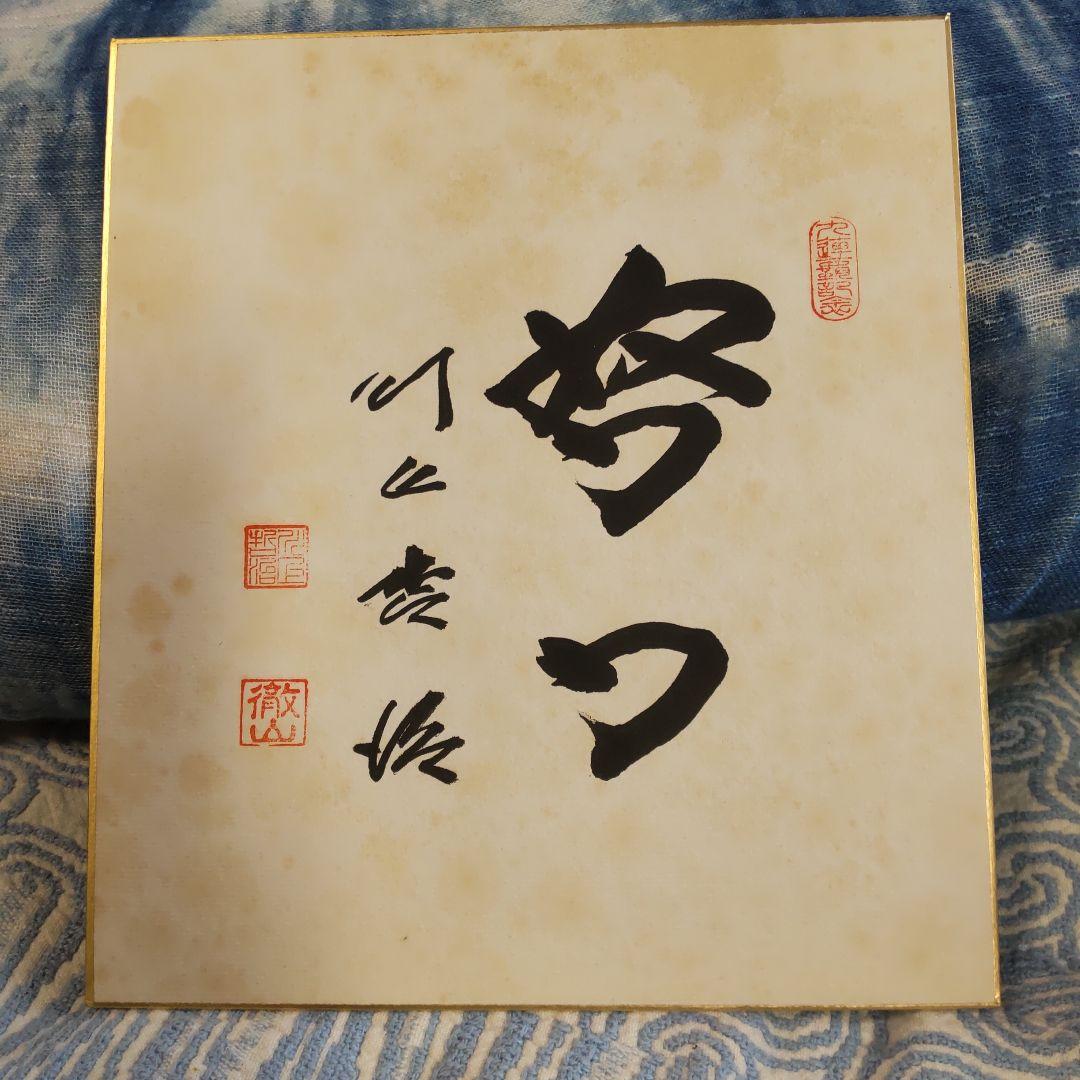 努力
川上哲治
徹山